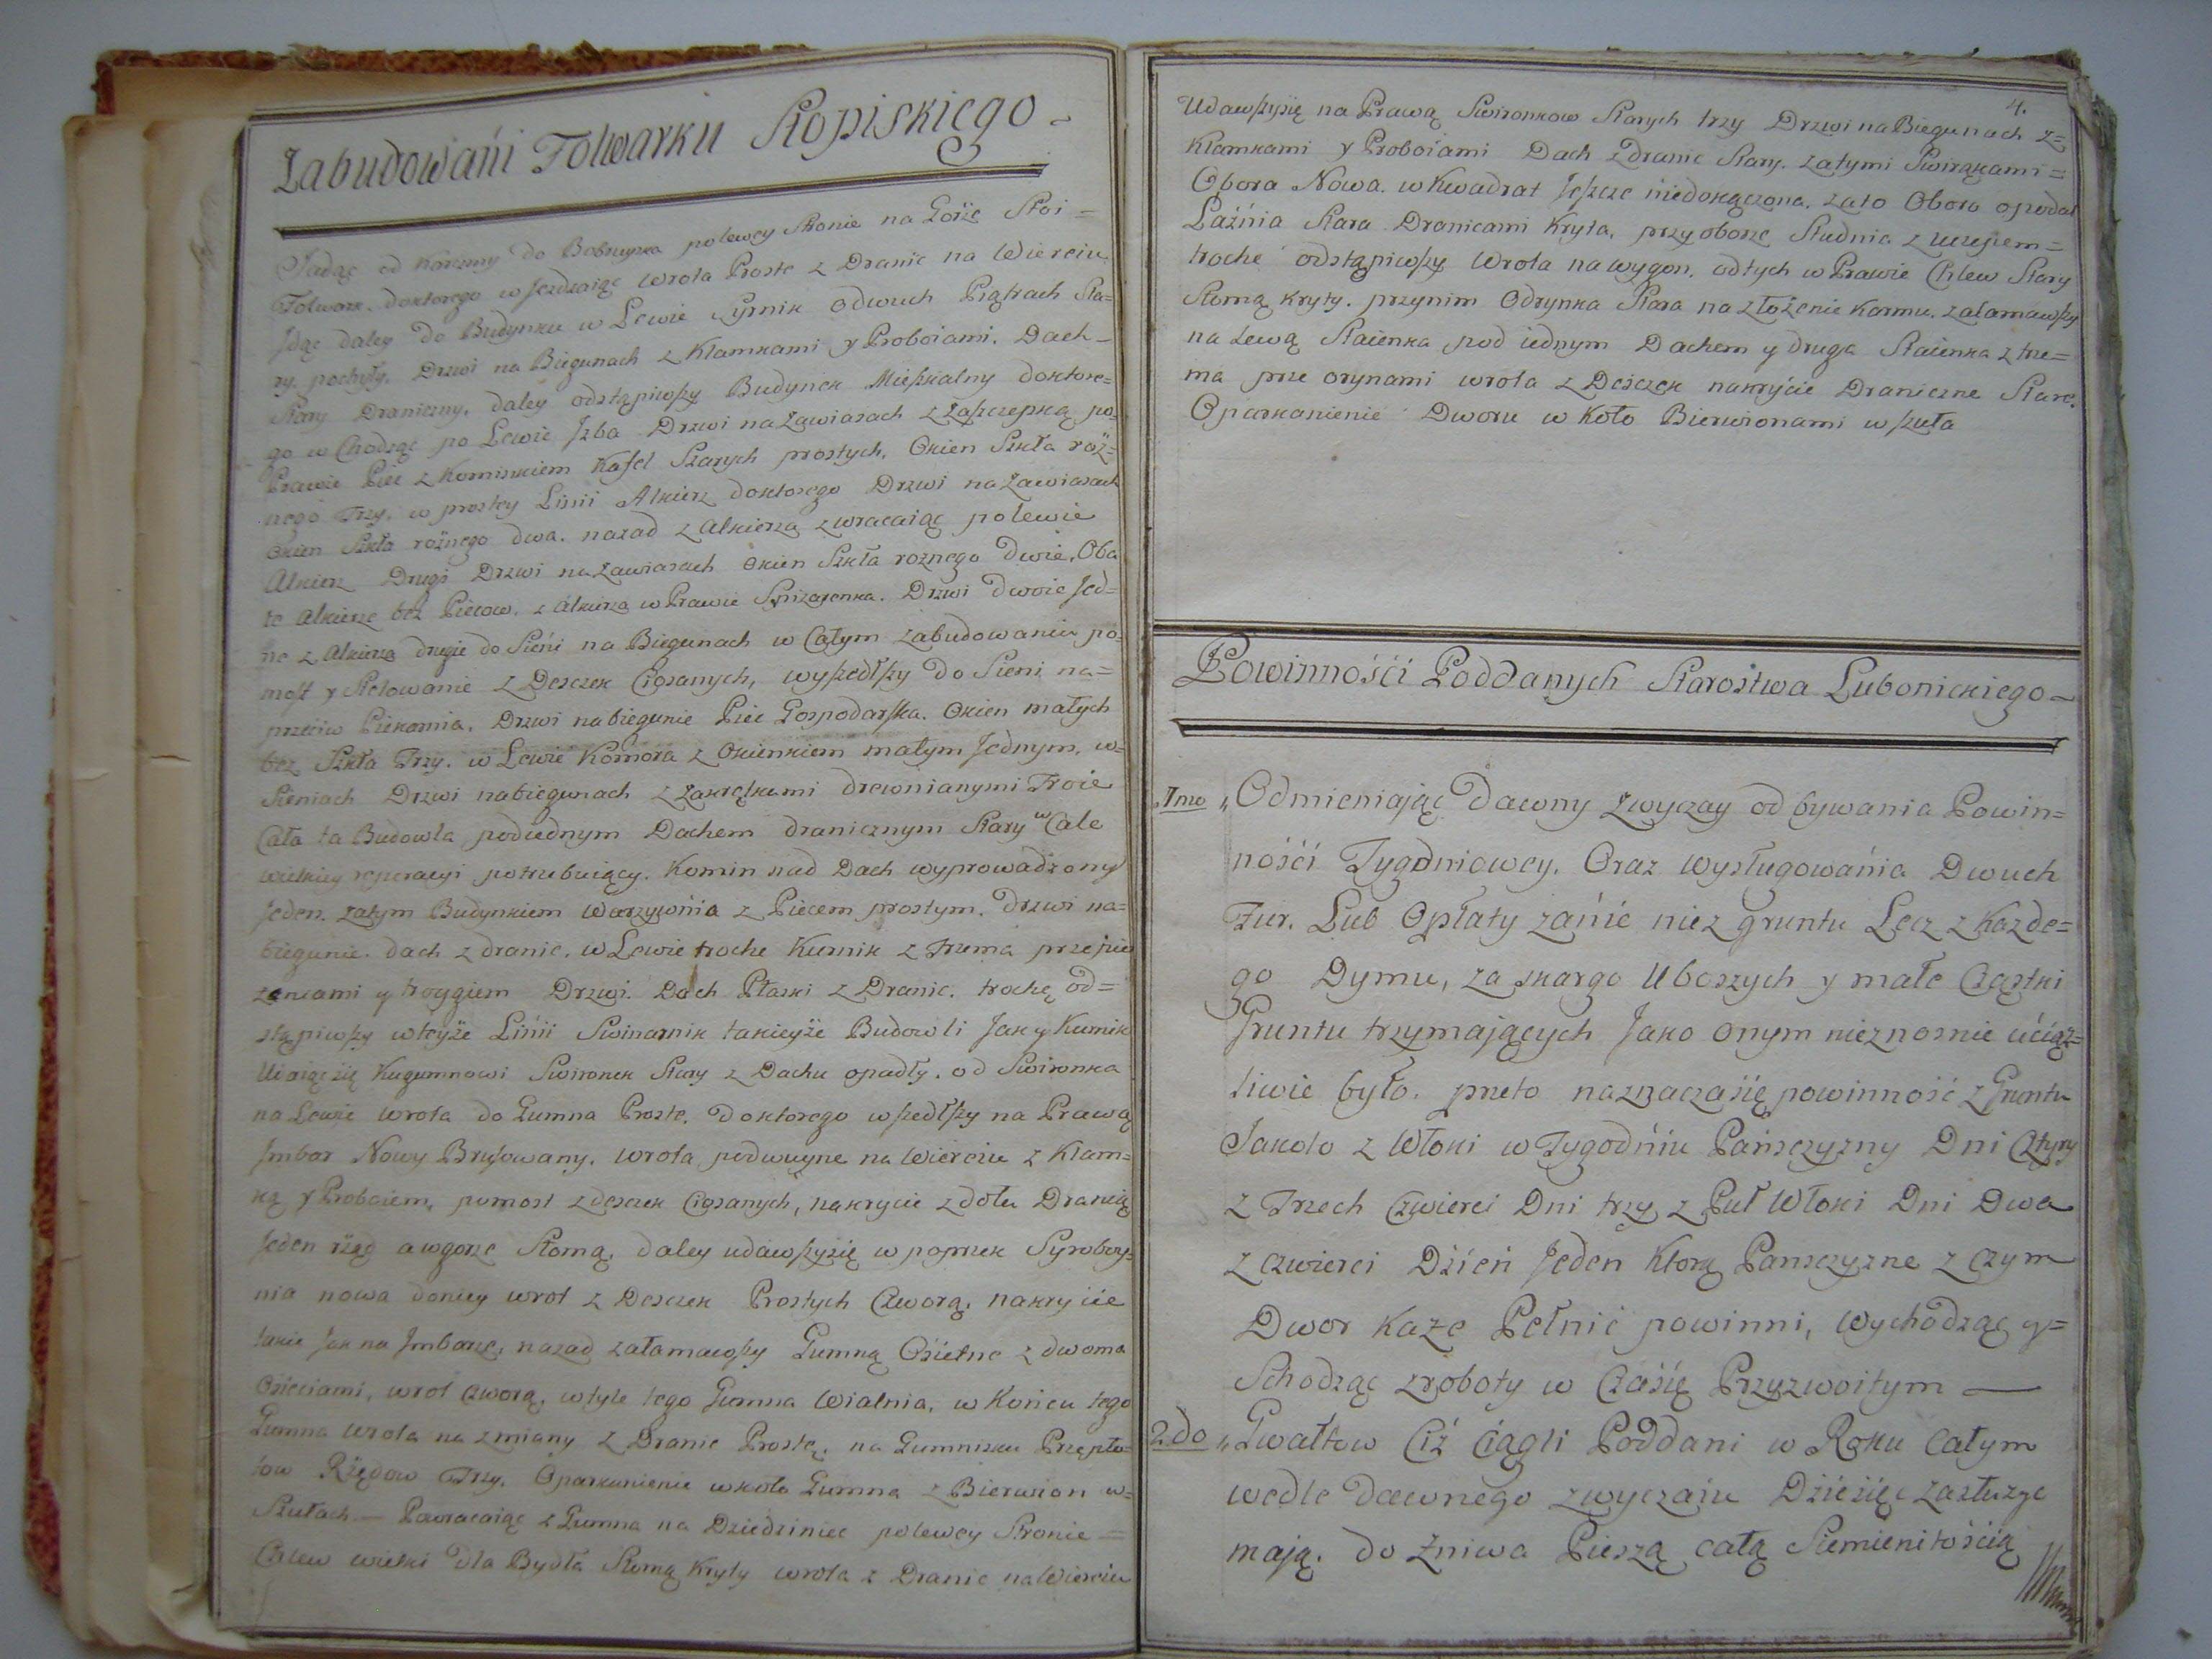 Zabudowańi Folwarku Stopiskiego
Jadąc od Karczmy do Bobruyska polewey stronie na Gorże Stoi=
Folwark. doktorego wJezdzaiąc Wrota Proste z Dranic na Wierciu
Jdąc daley do Budynku w Lewie Syrnik odwuch Piątrach Sta=
ry. pochyły. Drzwi na Biegunach z Klamkami y Proboiami. Dach=
Stary Draniczny. daley odstąpiwszy Budynek Mieszkalny doktore=
go wChodząc po Lewie Jzba Drzwi na Zawiasach z Zaszczepką po
Prawie Piec z Kominkiem Kafel Szarych prostych. Okien Szkła róż=
nego Trzy. w prostey Linii Alkierz doktorego Drzwi na Zawiasach
Okien Szkła rożnego dwa. nazad z Alkierza zwracaiąc polewie
Alkierz Drugi Drzwi na Zawiasach Okien Szkła roznego Dwie. Oba
te Alkierze bez Piecow. z Alkierza w Prawie Spizarenka. Drzwi Dwoie Jed=
ne z Alkierza drugie do Sieni na Biegunach w Całym zabudowaniu po=
most y Stelowanie z Desczek Ciosanych, wyszedłszy do Sieni na=
przeciw Piekarnia. Drzwi nabiegunie Piec Gospodarska. Okien małych
bez Szkła Trzy. w Lewie Komora z Okienkiem małym Jednym. w=
Sieniach Drzwi nabiegunach z zakrętkami drewnianymi Troie
Cała ta Budowla podiednym Dachem dranicznym Stary w Cale
wielkiey reperacyi potrzebuiący. Komin nad Dach wyprowadzony
Jeden. zatym Budynkiem Warzywnia z Piecem prostym. Drzwi na=
biegunie. dach z dranic. w Lewie troche Kurnik z Trzema przepie
rzeniami y troygiem Drzwi. Dach Płaski z Dranic. trochę od=
stąpiwszy wteyże Linii Swinarnik takieyże Budowli Jak y Kurnik
Udaiąc się Kugumnowi Swironek Stary z Dachu opadły. od Swironka
na Lewie wrota do Gumna Proste. Doktorego wszedłszy na Prawą
Jmbar Nowy Brusowany. wrota podwuyne na Wierciu z Klam=
ką y Proboiem, pomost z desczek Ciosanych, nakrycie z dołu Dranicą
Jeden rząd awgorze Słomą, daley udawszysię w poprzek Syrobory=
nia nowa doniey wrot z Desczek Prostych Czworą, nakrycie
takie Jak na Jmbarze, nazad załamawszy Gumną Osietne z dwoma
Osieciami, wrot Czworą. wtyle tego Gumna Wialnia. w Końcu tego
Gumna Wrota na zmiany z Dranic Proste. na Gumnisku Przepło=
tow Rzędow Trzy. Oparkanienie wkoło Gumna z Bierwion w=
Szułach — Powracaiąc z Gumna na Dziedziniec polewey Stronie=
Chlew wielki dla Bydła Słomą Kryty wrota z Dranic na Wierciu
4.
Udawszysię na Prawą Swironkow Starych trzy Drzwi na Biegunach z=
Klamkami y Proboiami Dach zdranic Stary. zatymi Swirąkami=
Obora Nowa. w Kwadrat Jeszcze niedokączona. zato Obora opodal
Łaźnia Stara Dranicami Kryta, przy oborze Studnia z =
trochę odstąpiwszy Wrota na wygon. odtych w Prawie Chlew Stary
Słomą Kryty. przynim Odrynka Stara na złożenie Karmu. załamawszy
na Lewą Staienka pod iednym Dachem y druga Staienka z trze=
ma prze orynami wrota z Desczek nakryćie Draniczne Stare.
Oparkanienie Dworu w Koło Bierwionami w szuła
Powinnośći Poddanych Starostwa Lubonickiego
1mo „Odmieniając Dawny Zwyczay odbywania Powin=
nośći Tygodniowey. Oraz wysługowańia Dwuch
Fur. Lub Opłaty zańie niez gruntu Lecz z Kazde=
go Dymu, za skargo Uboszych y małe Cząstki
Gruntu trzymających Jako onym nieznosnie ućiąż=
liwie było. przeto naznaczasię powinność z Gruntu
Jakoto z Włoki w Tygodńiu Pańsczyzny Dni Cztyry
z Trzech Czwierci Dni trzy z Puł Włoki Dni Dwa
z czwierci Dźień Jeden Ktorą Pansczyzne z czym
Dwor Kaze Pełnić powinni, wychodząc y=
Schodząc zroboty w Czasię Przyzwoitym —
2do „Gwałtow Ciź Ciągli Poddani w Roku Całym
wedle dawnego zwyczaiu Dźiesięc zasłuzyc
mają. do Żniwa Pieszą całą Siemienitośćią